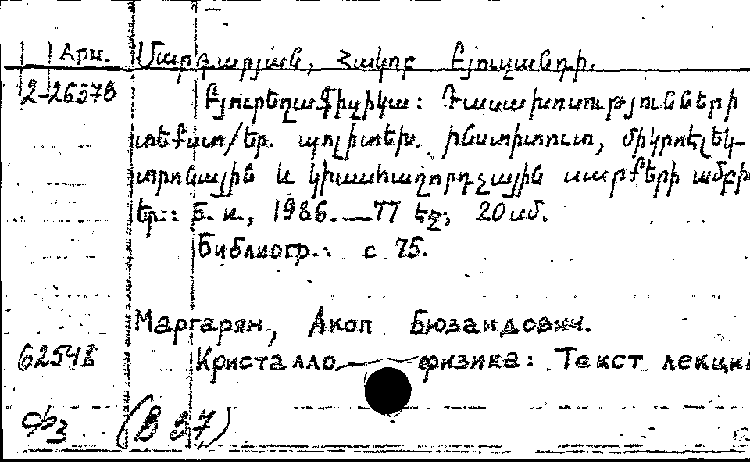 Արտ. Մարգարյան, Հակոբ Բյուզանդի.
2-26378 Բյուրեղաֆիզիկա: Դասախոսությունների
տեքստ/Եր. պոլիտեխ. ինստիտուտ, միկրոէլեկ-
տրոնային և կիսահաղորդչային սարքերի ամբի
Եր.: Б. и., 1986.—77 էջ; 20սմ.
Библиогр.: с 75.
Маргарян, Акоп Бюзандович.
62548 Кристалло—физика: Текст лекций
Фз (В 37)